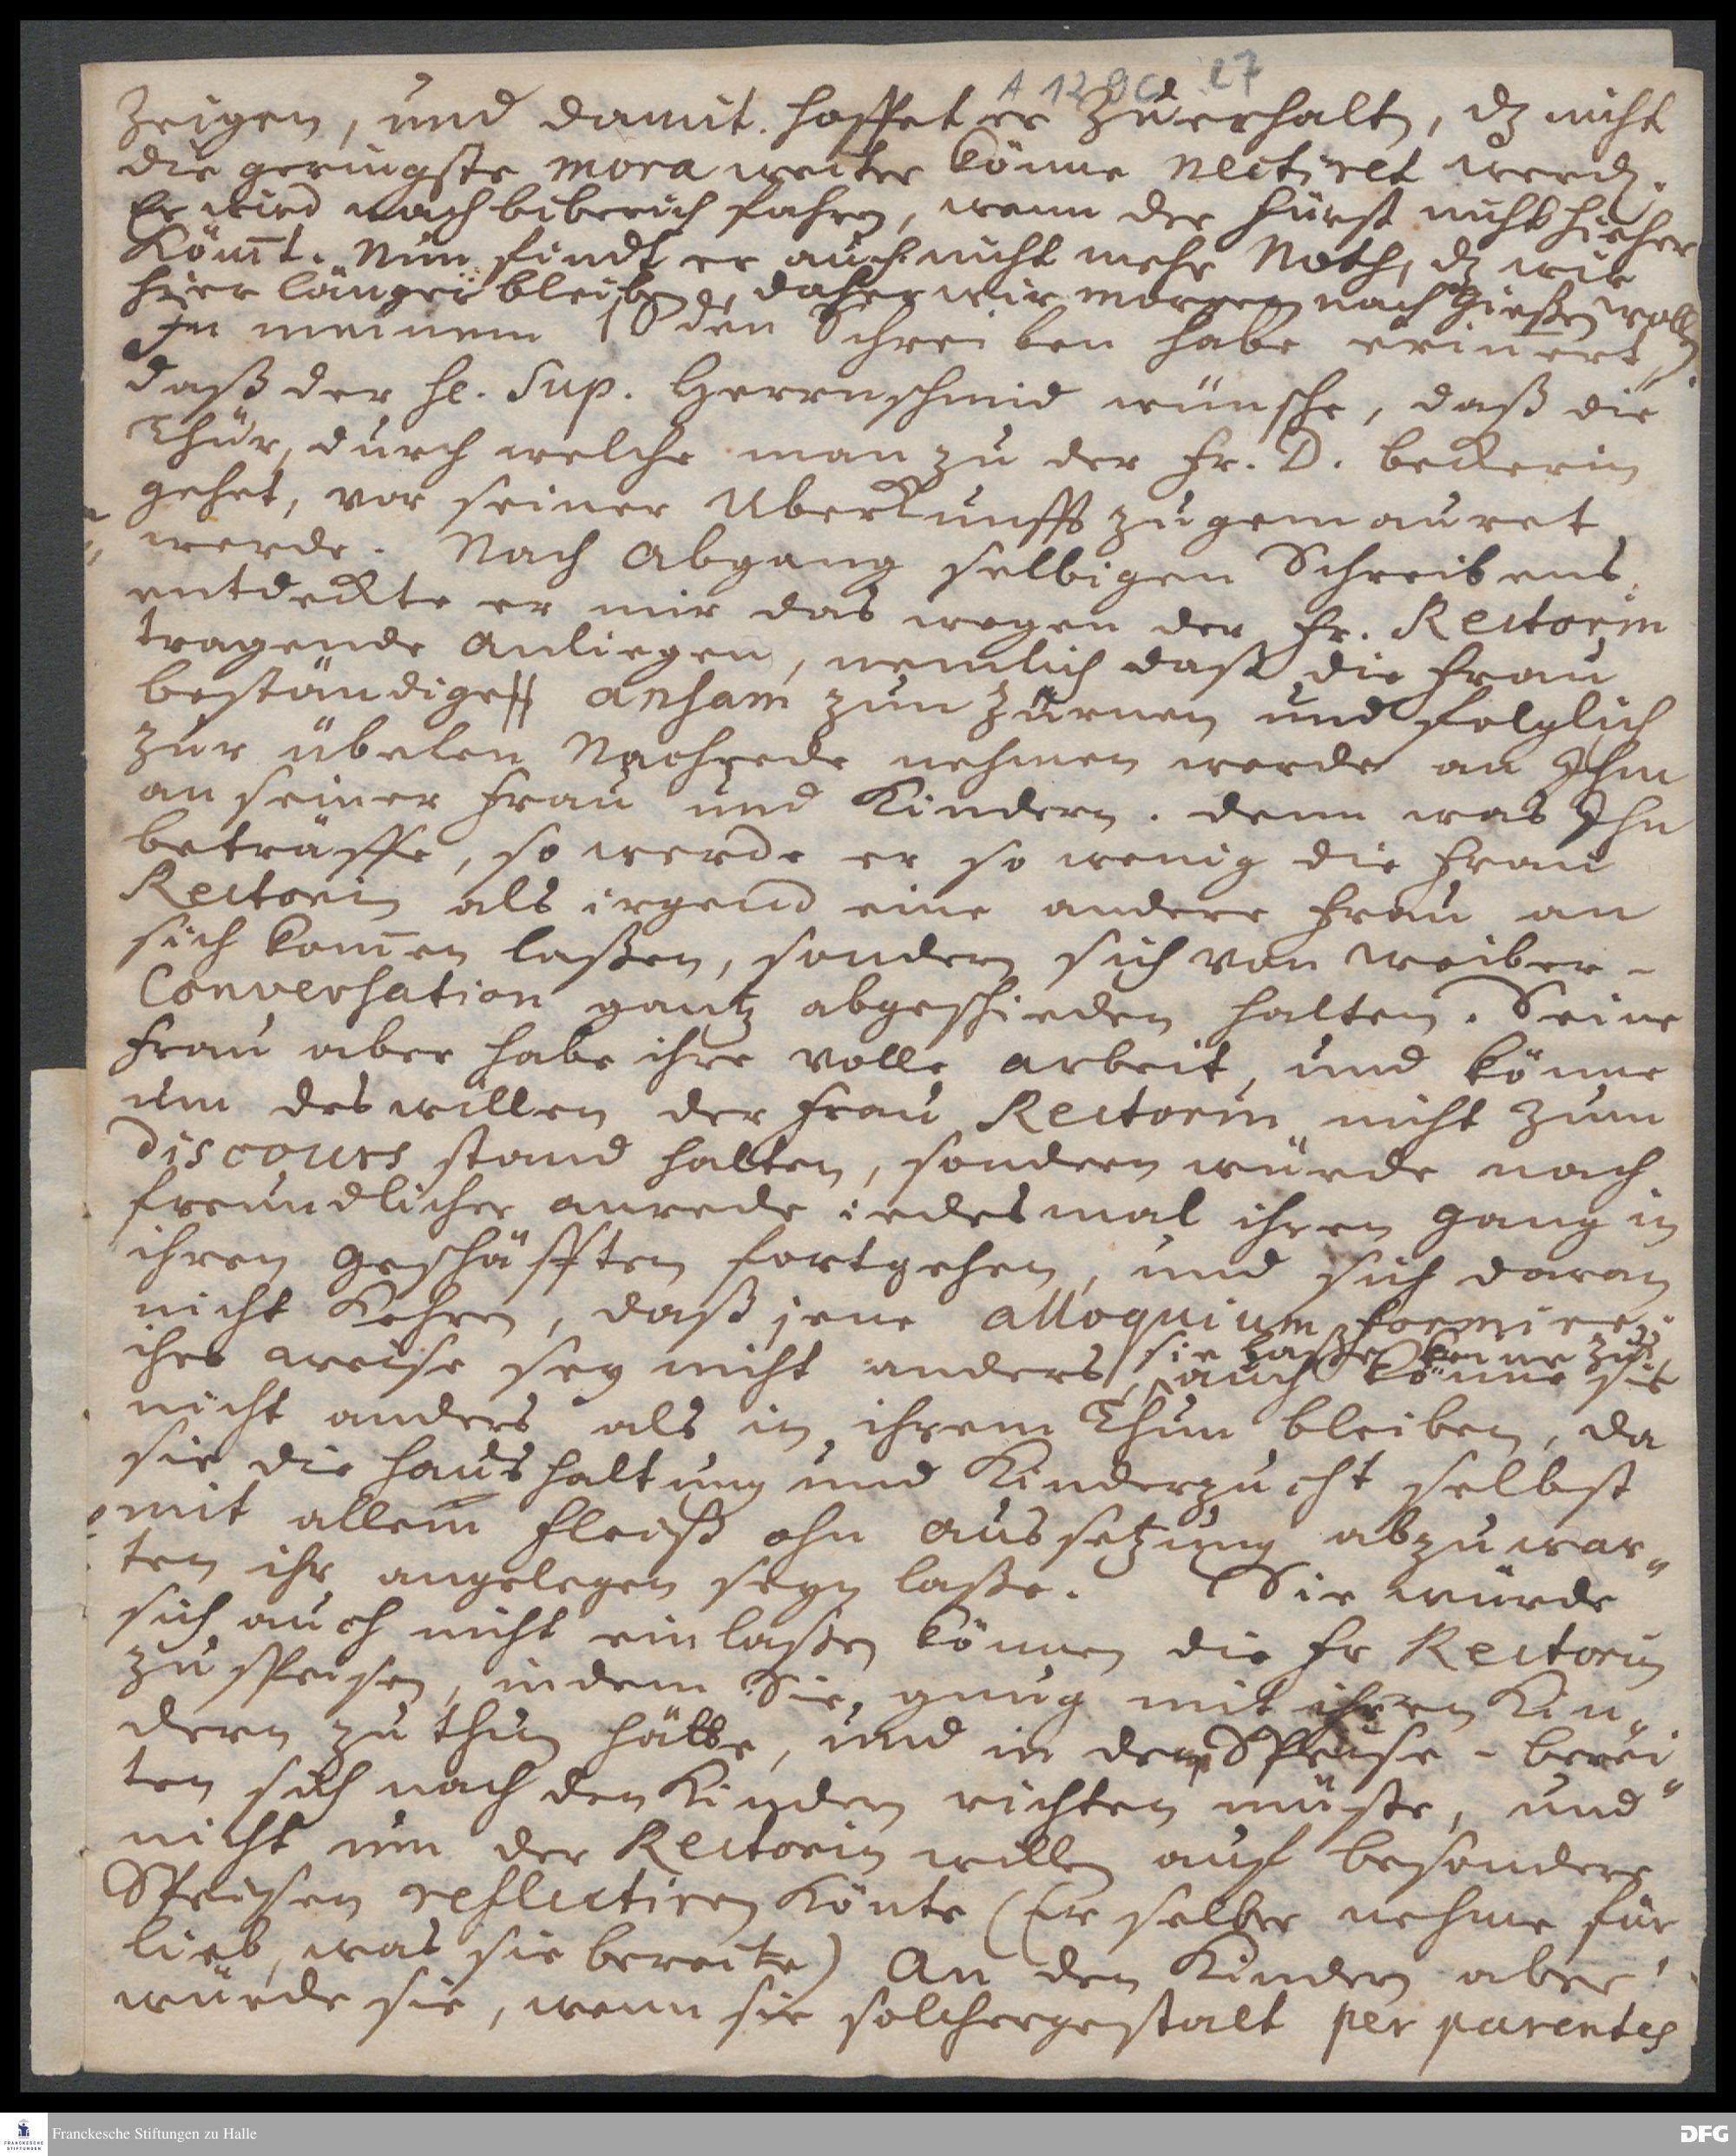 A 129c 27
Zeigen, und damit hoffet er zu erhalten, dz nicht
die geringste mora weiter könne nectiret werden.
Er wird nach biberich fahren, wenn der Fürst nicht hieher
kömt. Nun findt er auch nicht mehr Noth, dz wir
hier länger bleiben, daher wir morgen nach Gießen wollen.
In meinem den Schreiben habe erinnert,
daß der H. Sup. Herrnschmid wünsche, daß die
Thür, durch welche man zu der Fr. D. beckerin
gehet, vor seiner Uberkunfft zugemauret
werde. Nach Abgang selbigen Schreibens
entdeckte er mir das wegen der Fr. Rectorin
tragende Anliegen, nemlich daß die Frau
beständigen ansam zum Zürnen und folglich
zur übelen Nachrede nehmen werde an Ihm
an seiner Frau und Kindern. denn was Ihn
beträffe, so werde er so wenig die Frau
Rectorin als irgend eine andere Frau an
sich kommen laßen, sondern sich von weiber-
Conversation gantz abgeschieden halten. Seine
Frau aber habe ihre volle arbeit, und könne
um deswillen der Frau Rectorin nicht zum
discours stand halten, sondern würde nach
freundlicher anrede iedesmal ihren gang in
ihren geschäfften fortgehen, und sich daran
nicht kehren, daß jene alloquium formire;
ihre weise sey nicht anders, sie laße keine zu,
auch könne sie
nicht anders als in ihrem Thun bleiben, da
sie die haushaltung und Kinderzucht selbst
mit allem Fleiß ohn aussetzung abzuwar-
ten ihr angelegen seyn laße. Sie würde
sich auch nicht einlaßen können die Fr Rectorin
zu speisen, indem Sie gnug mit ihren Kin-
dern zu thun hätte, und in dem Speise-berei-
ten sich nach den Kindern richten müste, und
nicht um der Rectorin willen auf besondere
Speisen reflectiren könte (Er selber nehme für
lieb, was sie bereite) An den Kindern aber
würde sie, wenn sie solchergestalt per parentes
Franckesche Stiftungen zu Halle
DFG